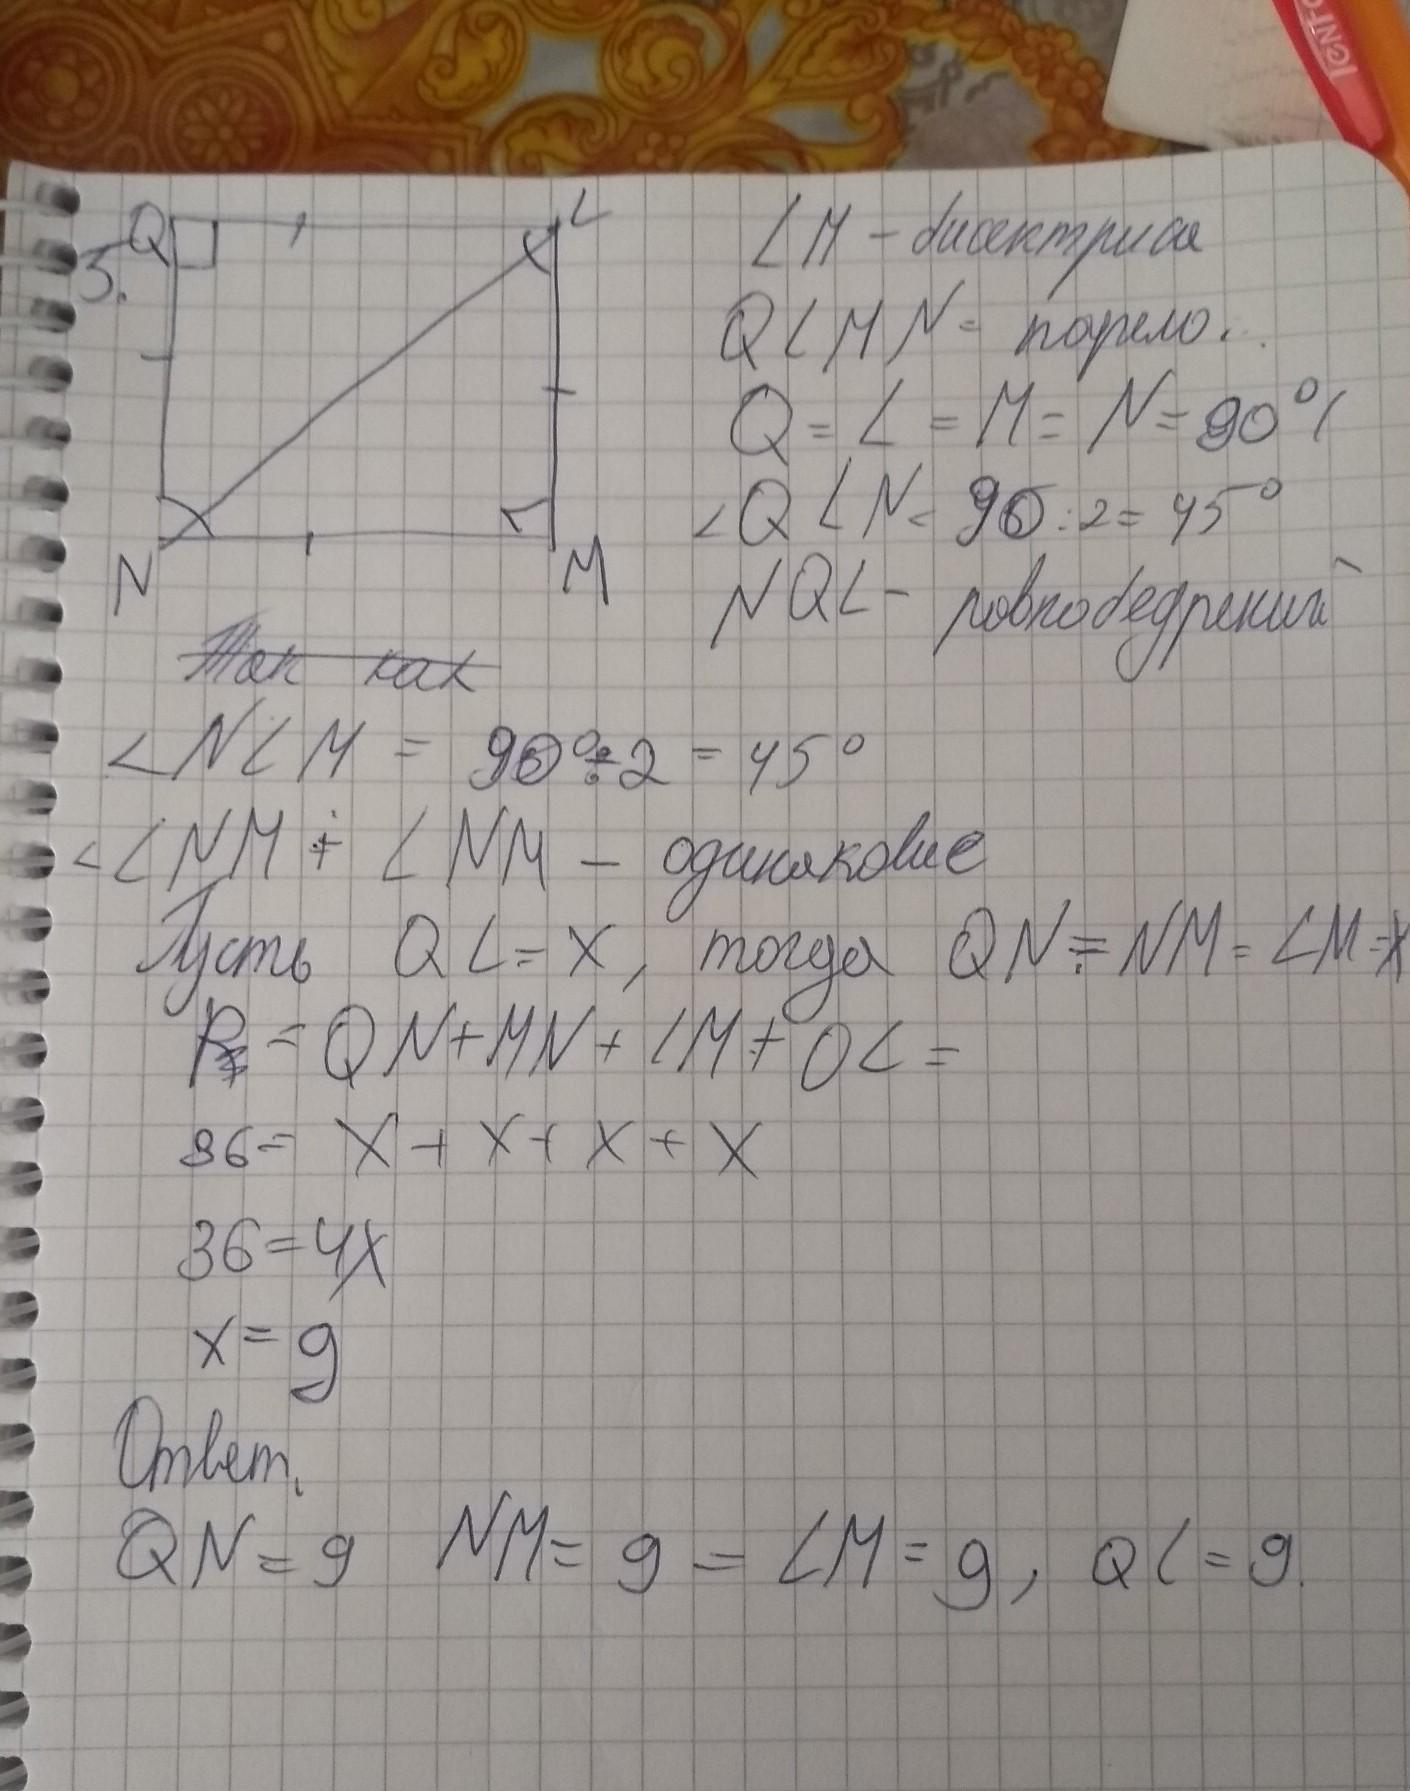 Q L
5.
N M
LM - бисектриса
QLMN = парело..
Q = L = M = N = 90°
<QLN = 90:2 = 45°
NQL - ровнобедрений
Так как
<NLM = 90° ÷ 2 = 45°
<LNM + LNM - одинаковые
Пусть QL = x, тогда QN = NM = LM = x
P = QN + MN + LM + QL =
36 = x + x + x + x
36 = 4x
x = 9
Ответ.
QN = 9 NM = 9 = LM = 9, QL = 9.